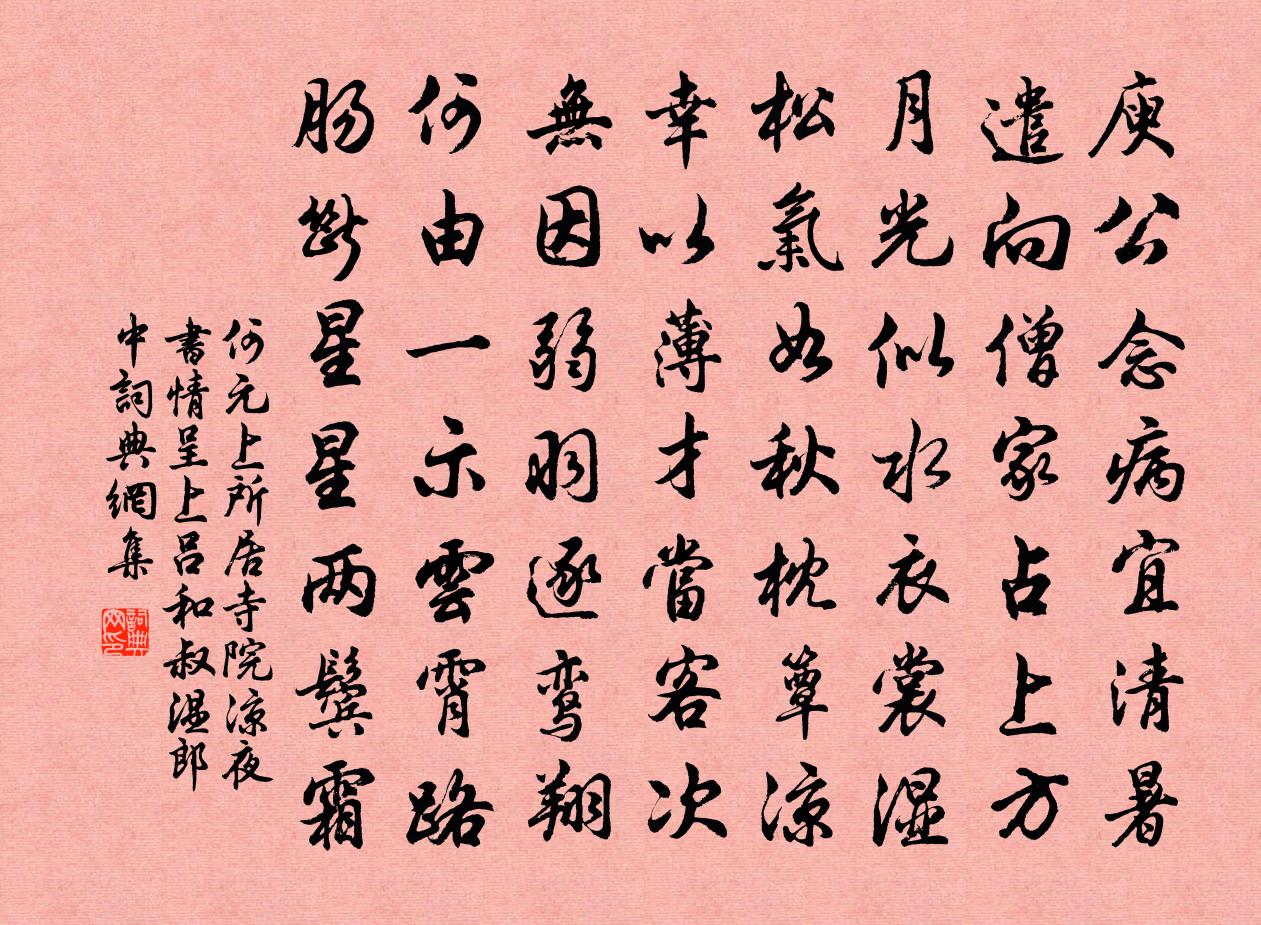 庾公念病宜清暑
遣向僧家占上方
月光似水衣裳湿
松氣如秋枕簟凉
幸以薄才當客次
無因弱羽逐鸾翔
何由一示雲霄路
肠斷星星两鬢霜
何元上所居寺院凉夜
書情呈上吕和叔温郎
中詞典網集
詞典
网印